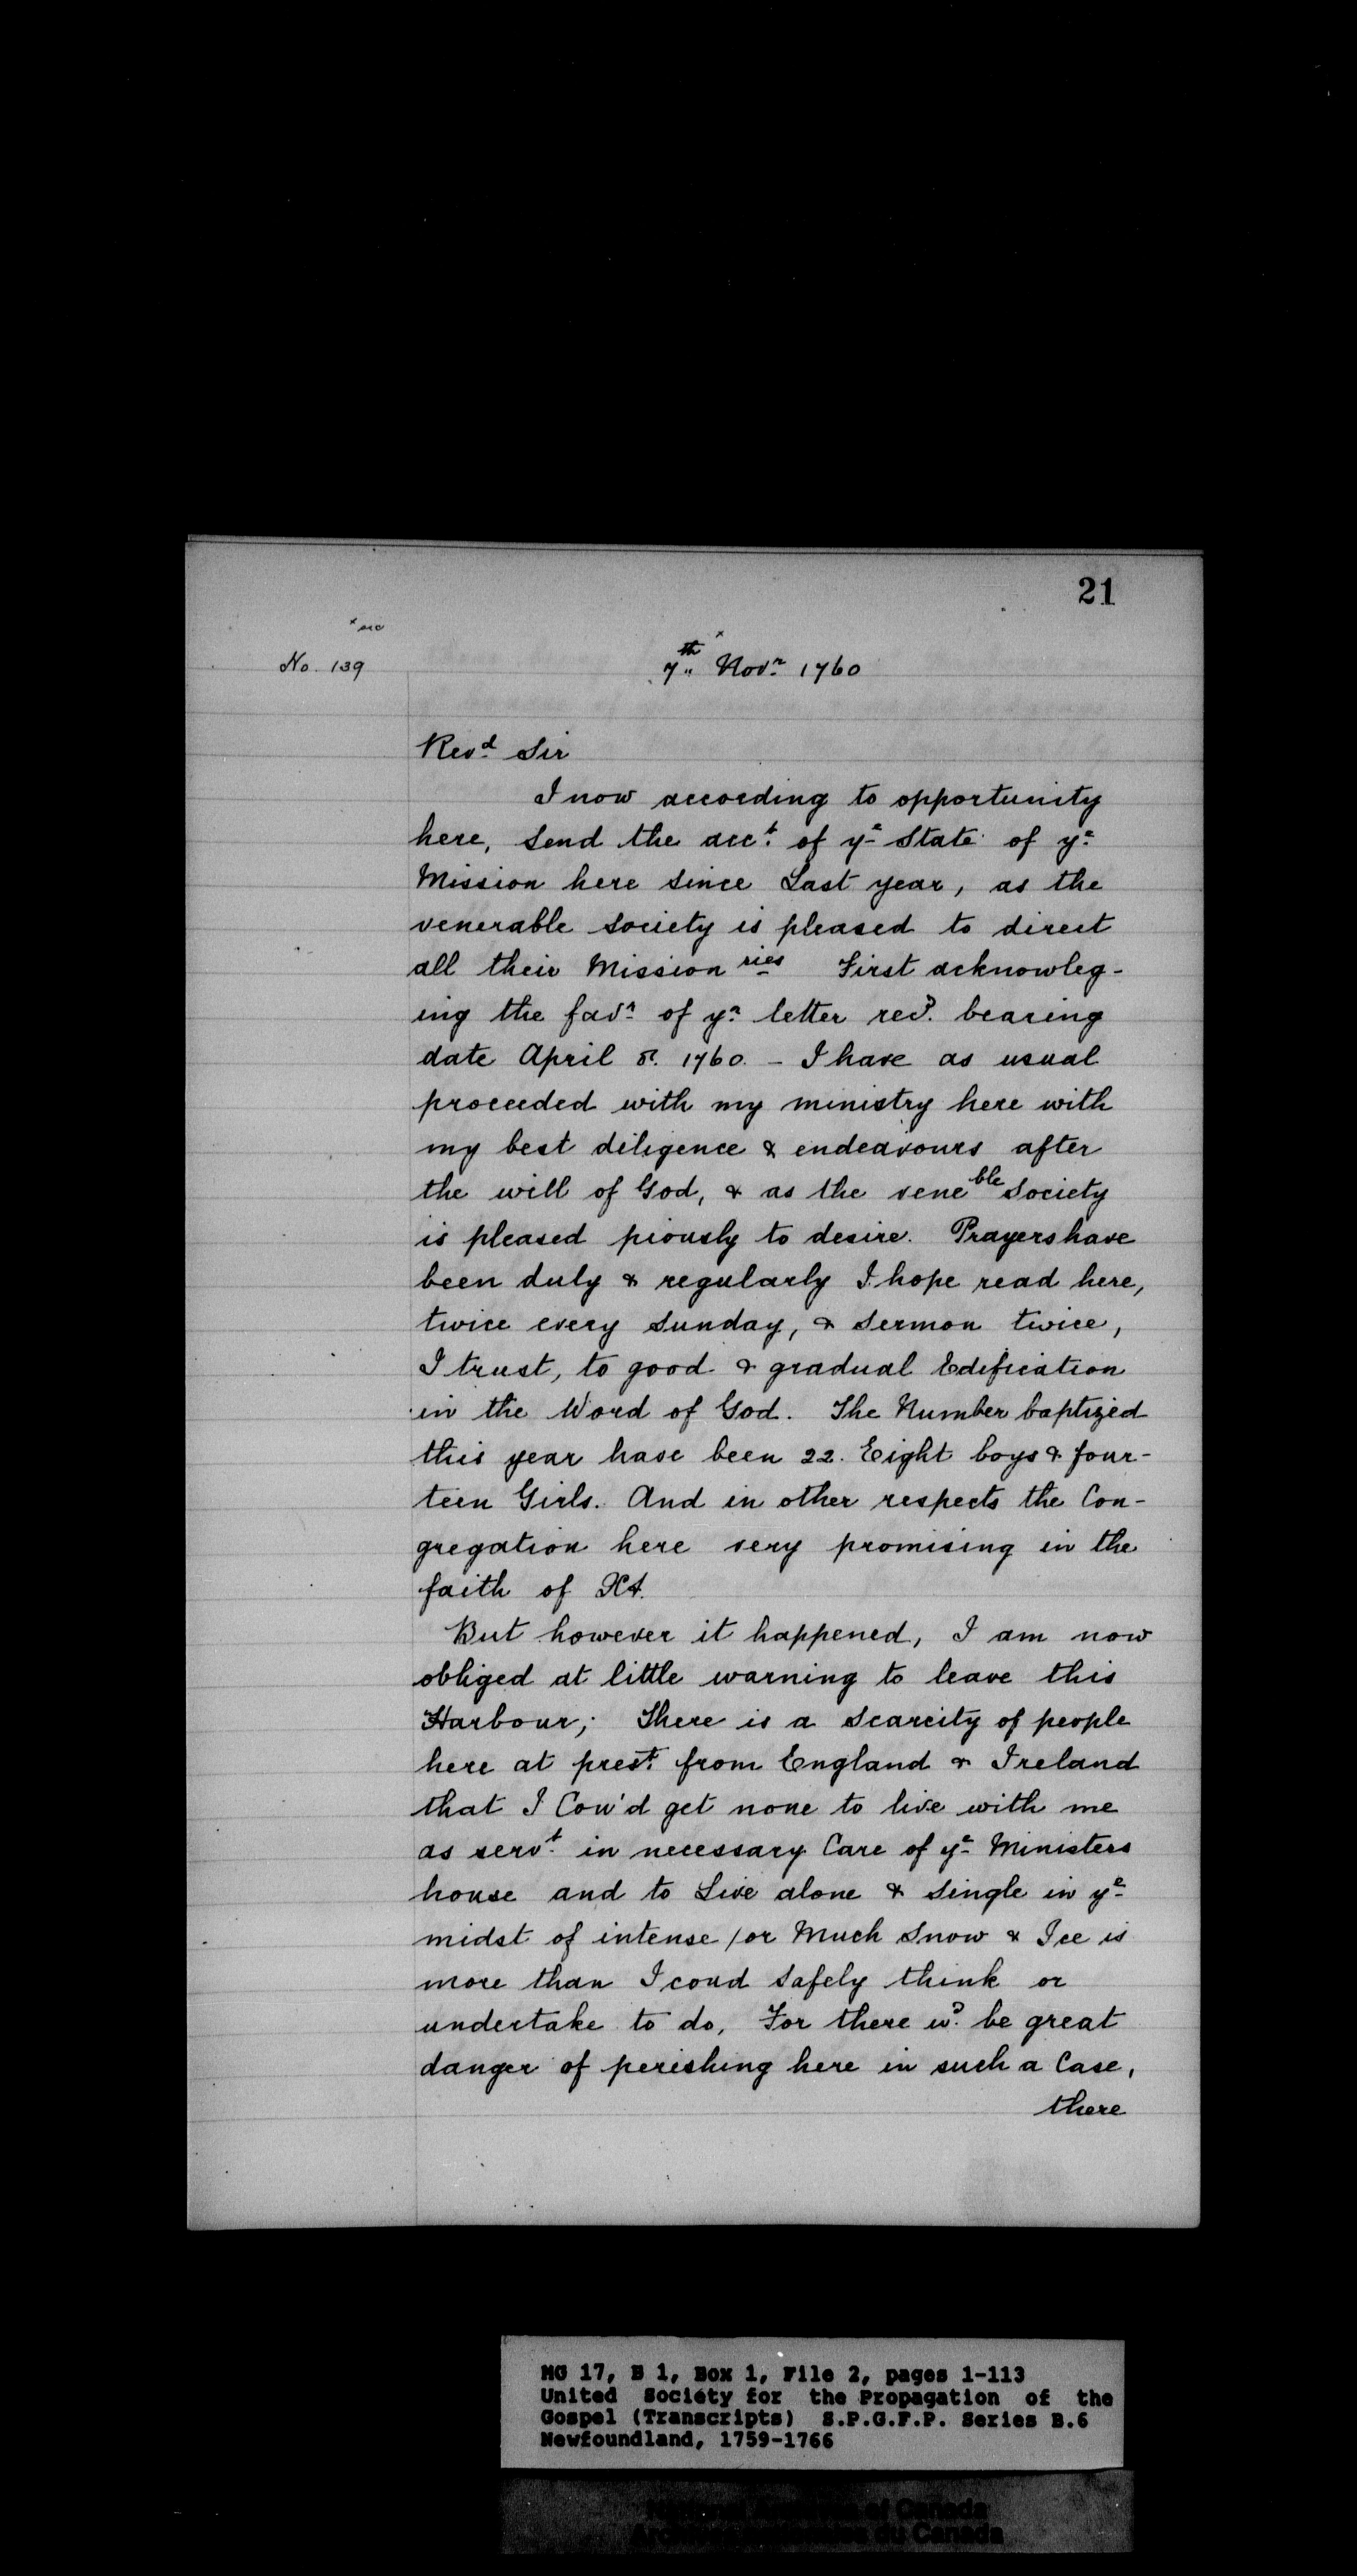 21
× sic
No. 139
7th Novr 1760 ×
Revd Sir
I now according to opportunity
here, send the acct of ye State of ye
Mission here since Last year, as the
venerable Society is pleased to direct
all their Missionries First acknowleg-
ing the favr of yr letter recd. bearing
date April 1760. – I have as usual
proceeded with my ministry here with
my best diligence & endeavours after
the will of God, & as the veneble Society
is pleased piously to desire. Prayers have
been duly & regularly I hope read here,
twice every Sunday, & Sermon twice,
I trust, to good & gradual Edification
in the Word of God. The Number baptized
this year have been 22. Eight boys & four-
teen Girls. And in other respects the Con-
gregation here very promising in the
faith of Xt.
But however it happened, I am now
obliged at little warning to leave this
Harbour; There is a Scarcity of people
here at prest from England & Ireland
that I Cou'd get none to live with me
as servt in necessary Care of ye Ministers
house and to Live alone & Single in ye
midst of intense / or Much Snow & Ice is
more than I coud Safely think or
undertake to do, For there wd. be great
danger of perishing here in such a Case,
there
MG 17, B 1, Box 1, File 2, pages 1-113
United Society for the Propagation of the
Gospel (Transcripts) S.P.G.F.P. Series B.6
Newfoundland, 1759-1766
National Archives of Canada
Archives nationales du Canada